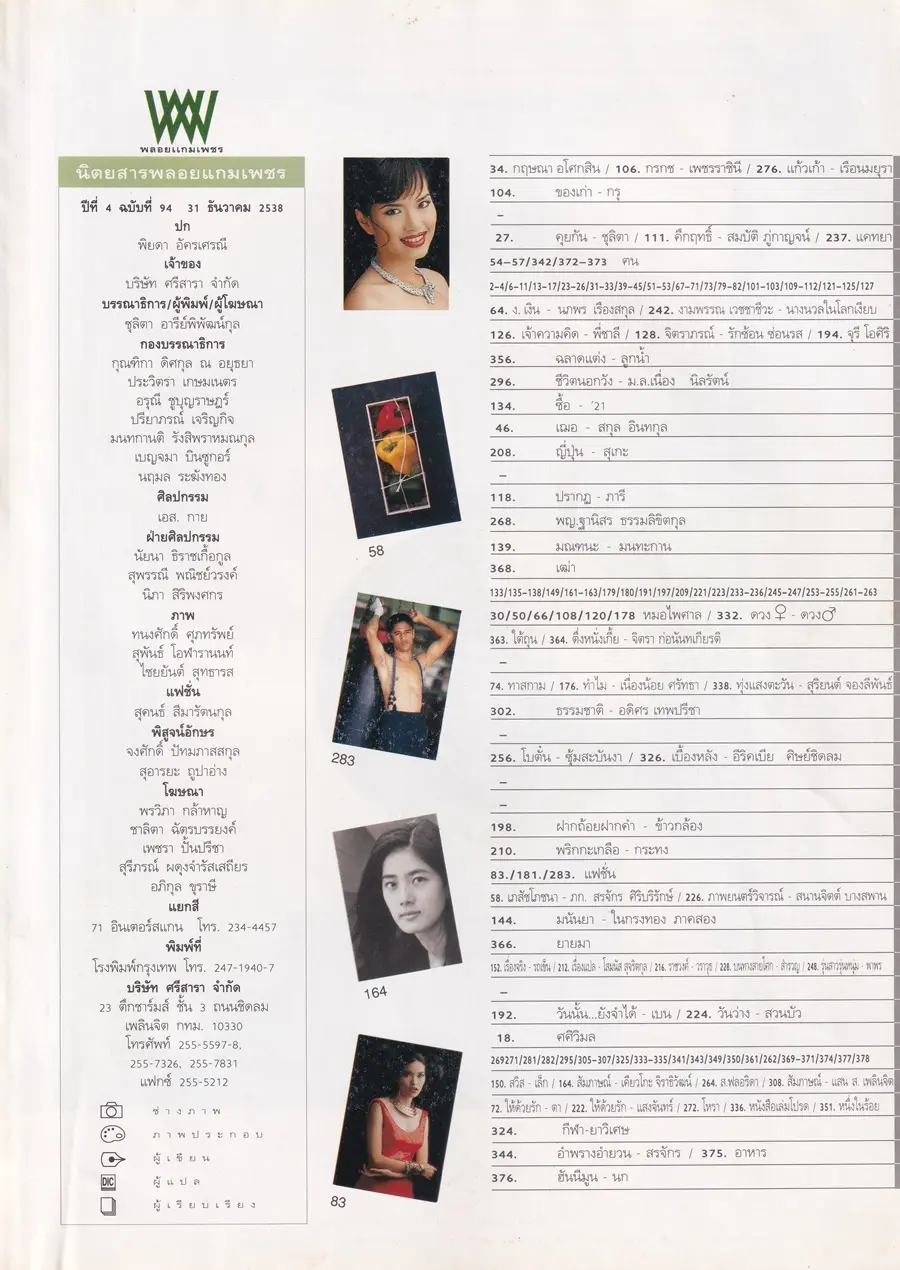 พลอยแกมเพชร
นิตยสารพลอยแกมเพชร
ปีที่ 4 ฉบับที่ 94 31 ธันวาคม 2538
ปก
พิยดา อัครเศรณี
เจ้าของ
บริษัท ศรีสารา จำกัด
บรรณาธิการ/ผู้พิมพ์/ผู้โฆษณา
ชุลิตา อารีย์พิพัฒน์กุล
กองบรรณาธิการ
กุณฑิกา ดิศกุล ณ อยุธยา
ประวิตรา เกษมเนตร
อรุณี ชูบุญราษฎร์
ปรียาภรณ์ เจริญกิจ
มนทกานติ รังสิพราหมณกุล
เบญจมา บินซูกอร์
นฤมล ระฆังทอง
ศิลปกรรม
เอส. กาย
ฝ่ายศิลปกรรม
นัยนา ธิราชเกื้อกูล
สุพรรณี พณิชย์วรงค์
นิภา สิริพงศกร
ภาพ
ทนงศักดิ์ ศุภทรัพย์
สุพันธ์ โอฬารานนท์
ไชยยันต์ สุทธารส
แฟชั่น
สุคนธ์ สีมารัตนกุล
พิสูจน์อักษร
จงศักดิ์ ปัทมภาสสกุล
สุอารยะ ถูปาอ่าง
โฆษณา
พรวิภา กล้าหาญ
ชาลิตา ฉัตรบรรยงค์
เพชรา ปั้นปรีชา
สุรีภรณ์ ผดุงจำรัสเสถียร
อภิกุล ขุราษี
แยกสี
71 อินเตอร์สแกน โทร. 234-4457
พิมพ์ที่
โรงพิมพ์กรุงเทพ โทร. 247-1940-7
บริษัท ศรีสารา จำกัด
23 ตึกชาร์มส์ ชั้น 3 ถนนชิดลม
เพลินจิต กทม. 10330
โทรศัพท์ 255-5597-8,
255-7326, 255-7831
แฟกซ์ 255-5212
ช่างภาพ
ภาพประกอบ
ผู้เขียน
DIC ผู้แปล
ผู้เรียบเรียง
58
283
164
83
34. กฤษณา อโศกสิน / 106. กรกช - เพชรราชินี / 276. แก้วเก้า - เรือนมยุรา
104. ของเก่า - กรุ
–
27. คุยกัน - ชุลิตา / 111. คึกฤทธิ์ - สมบัติ ภู่กาญจน์ / 237. แคทยา
54-57/342/372-373 ฅน
2-4/6-11/13-17/23-26/31-33/39-45/51-53/67-71/73/79-82/101-103/109-112/121-125/127
64. ง. เงิน - นภพร เรืองสกุล / 242. งามพรรณ เวชชาชีวะ - นางนวลในโลกเงียบ
126. เจ้าความคิด - พี่ชาลี / 128. จิตราภรณ์ - รักซ้อน ซ่อนรส / 194. จุรี โอศิริ
356. ฉลาดแต่ง - ลูกน้ำ
296. ชีวิตนอกวัง - ม.ล.เนื่อง นิลรัตน์
134. ซื้อ - '21
46. เฌอ - สกุล อินทกุล
208. ญี่ปุ่น - สุเกะ
–
118. ปรากฏ - ภารี
268. พญ.ฐานิสร ธรรมลิขิตกุล
139. มณฑนะ - มนทะกาน
368. เฒ่า
133/135-138/149/161-163/179/180/191/197/209/221/223/233-236/245-247/253-255/261-263
30/50/66/108/120/178 หมอไพศาล / 332. ดวง ♀ - ดวง♂
363. ใต้ถุน / 364. ตึ่งหนั่งเกี้ย - จิตรา ก่อนันทเกียรติ
–
74. ทาสกาม / 176. ทำไม - เนื่องน้อย ศรัทธา / 338. ทุ่งแสงตะวัน - สุริยนต์ จองลีพันธ์
302. ธรรมชาติ - อดิศร เทพปรีชา
–
256. โบตั๋น - ซุ้มสะบันงา / 326. เบื้องหลัง - อีริคเบีย ศิษย์ชิดลม
–
–
198. ฝากถ้อยฝากคำ - ข้าวกล้อง
210. พริกกะเกลือ - กระทง
83./181./283. แฟชั่น
58. เภสัชโภชนา - ภก. สรจักร ศิริบริรักษ์ / 226. ภาพยนตร์วิจารณ์ - สนานจิตต์ บางสพาน
144. มนันยา - ในกรงทอง ภาคสอง
366. ยายมา
152. เรื่องจริง - รถเข็น / 212. เรื่องแปล - โสมนัส สุจริตกุล / 216. ราชวงศ์ - วราวุธ / 228. บนทางสายโศก - สำรวญ / 248. รุ่นสาวรุ่นหนุ่ม - พาพร
–
192. วันนั้น...ยังจำได้ - เบน / 224. วันว่าง - สวนบัว
18. ศศิวิมล
269271/281/282/295/305-307/325/333-335/341/343/349/350/361/262/369-371/374/377/378
150. สวิส - เล็ก / 164. สัมภาษณ์ - เดียวโกะ จิราธิวัฒน์ / 264. ส.ฟลอริดา / 308. สัมภาษณ์ - แสน ส. เพลินจิต
72. ให้ด้วยรัก - ตา / 222. ให้ด้วยรัก - แสงจันทร์ / 272. โหรา / 336. หนังสือเล่มโปรด / 351. หนึ่งในร้อย
324. กีฬา-ยาวิเศษ
344. อำพรางอำยวน - สรจักร / 375. อาหาร
376. ฮันนีมูน - นก